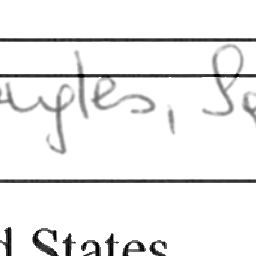 ngles, S
d States